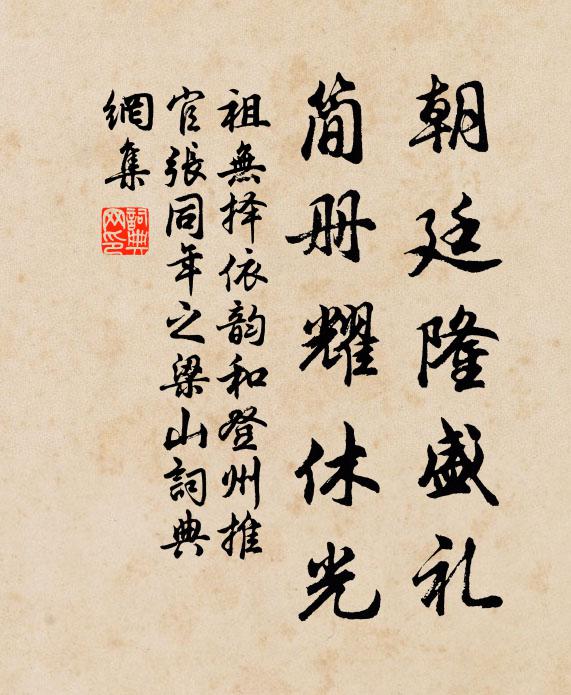 朝廷隆盛礼
简册耀休光
祖無择依韵和登州推
官張同年之梁山詞典
網集
詞典
网印